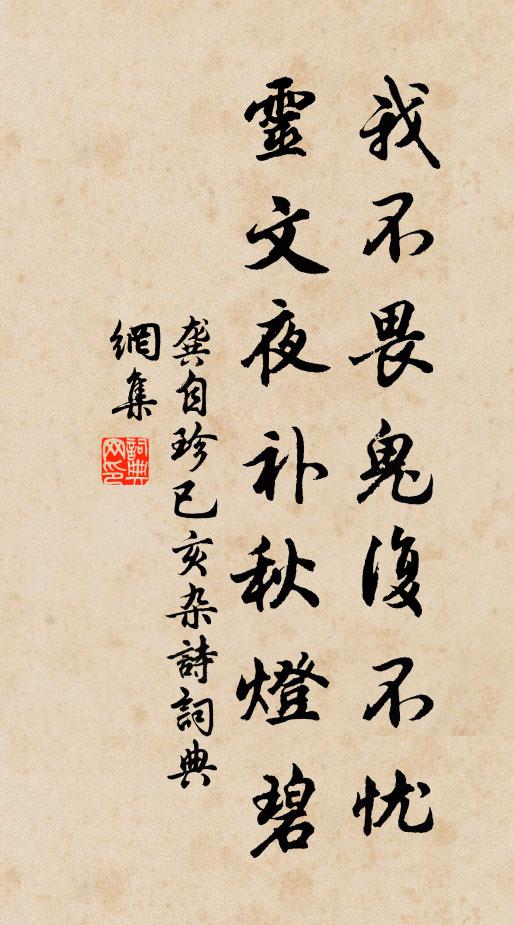 我不畏鬼復不忧
靈文夜补秋燈碧
龚自珍已亥杂詩詞典
網集
詞典网印